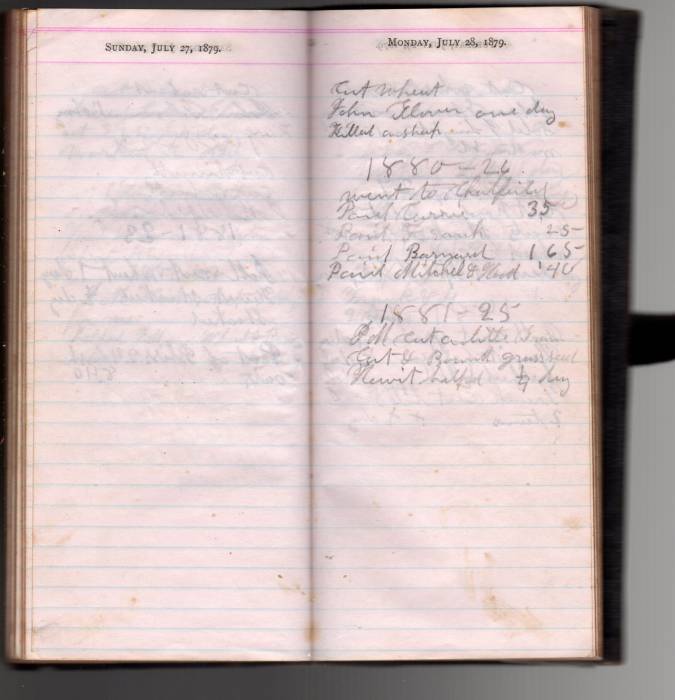 SUNDAY, JULY 27, 1879.
MONDAY, JULY 28, 1879.
Cut wheat
John Flower one day
Killed a sheep
1880 - 26
went to
Paid Currie 35
Paid 25
Paid Barnard 165
Paid Mitchel & Wood 40
1881 - 25
Bill cut a little
Cut & Bound grass seed
Hewit half day